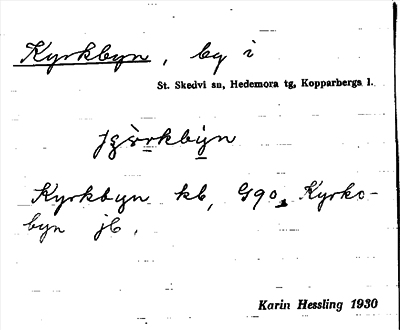 Kyrkbyn, by i
St. Skedvi sn, Hedemora tg, Kopparbergs l.
Kyrkbyn kb, G90, Kyrko-
byn jb.
Karin Hessling 1930